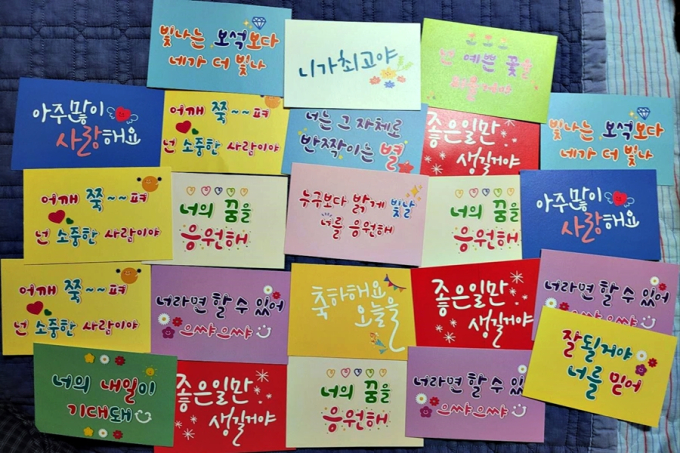 빛나는 보석보다
네가 더 빛나
니가최고야
넌 예쁜 꽃을
아주많이
사랑해요
어깨 쭉~~펴
넌 소중한 사람이야
너는 그 자체로
반짝이는 별
좋은일만
생길거야
빛나는 보석보다
네가 더 빛나
어깨 쭉~~펴
넌 소중한 사람이야
너의 꿈을
응원해
누구보다 밝게 빛날
너를 응원해
너의 꿈을
응원해
아주많이
사랑해요
어깨 쭉~~펴
넌 소중한 사람이야
너라면 할 수 있어
으쌰으쌰
축하해요
오늘을
좋은일만
생길거야
너라면 할 수 있어
으쌰으쌰
잘될거야
너를 믿어
너의 내일이
기대돼
좋은일만
생길거야
너의 꿈을
응원해
너라면 할 수 있어
으쌰으쌰